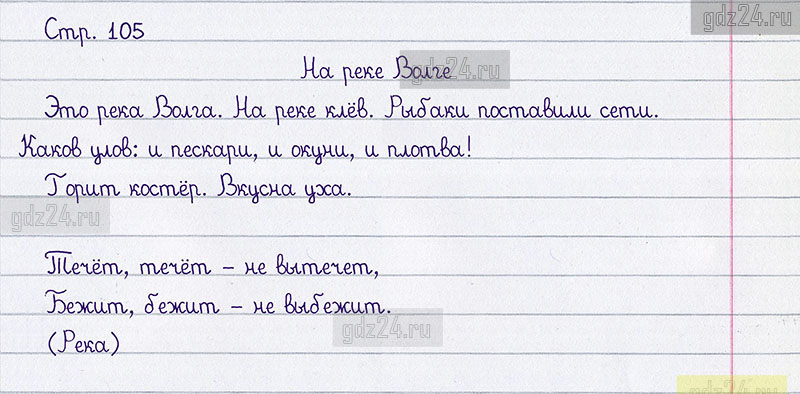 gdz24.ru
Стр. 105
На реке Волге
gdz24.ru
Это река Волга. На реке клёв. Рыбаки поставили сети.
Каков улов: и пескари, и окуни, и плотва!
Горит костёр. Вкусна уха.
gdz24.ru
Течёт, течёт – не вытечет,
Бежит, бежит – не выбежит.
gdz24.ru
(Река)
gdz24.ru